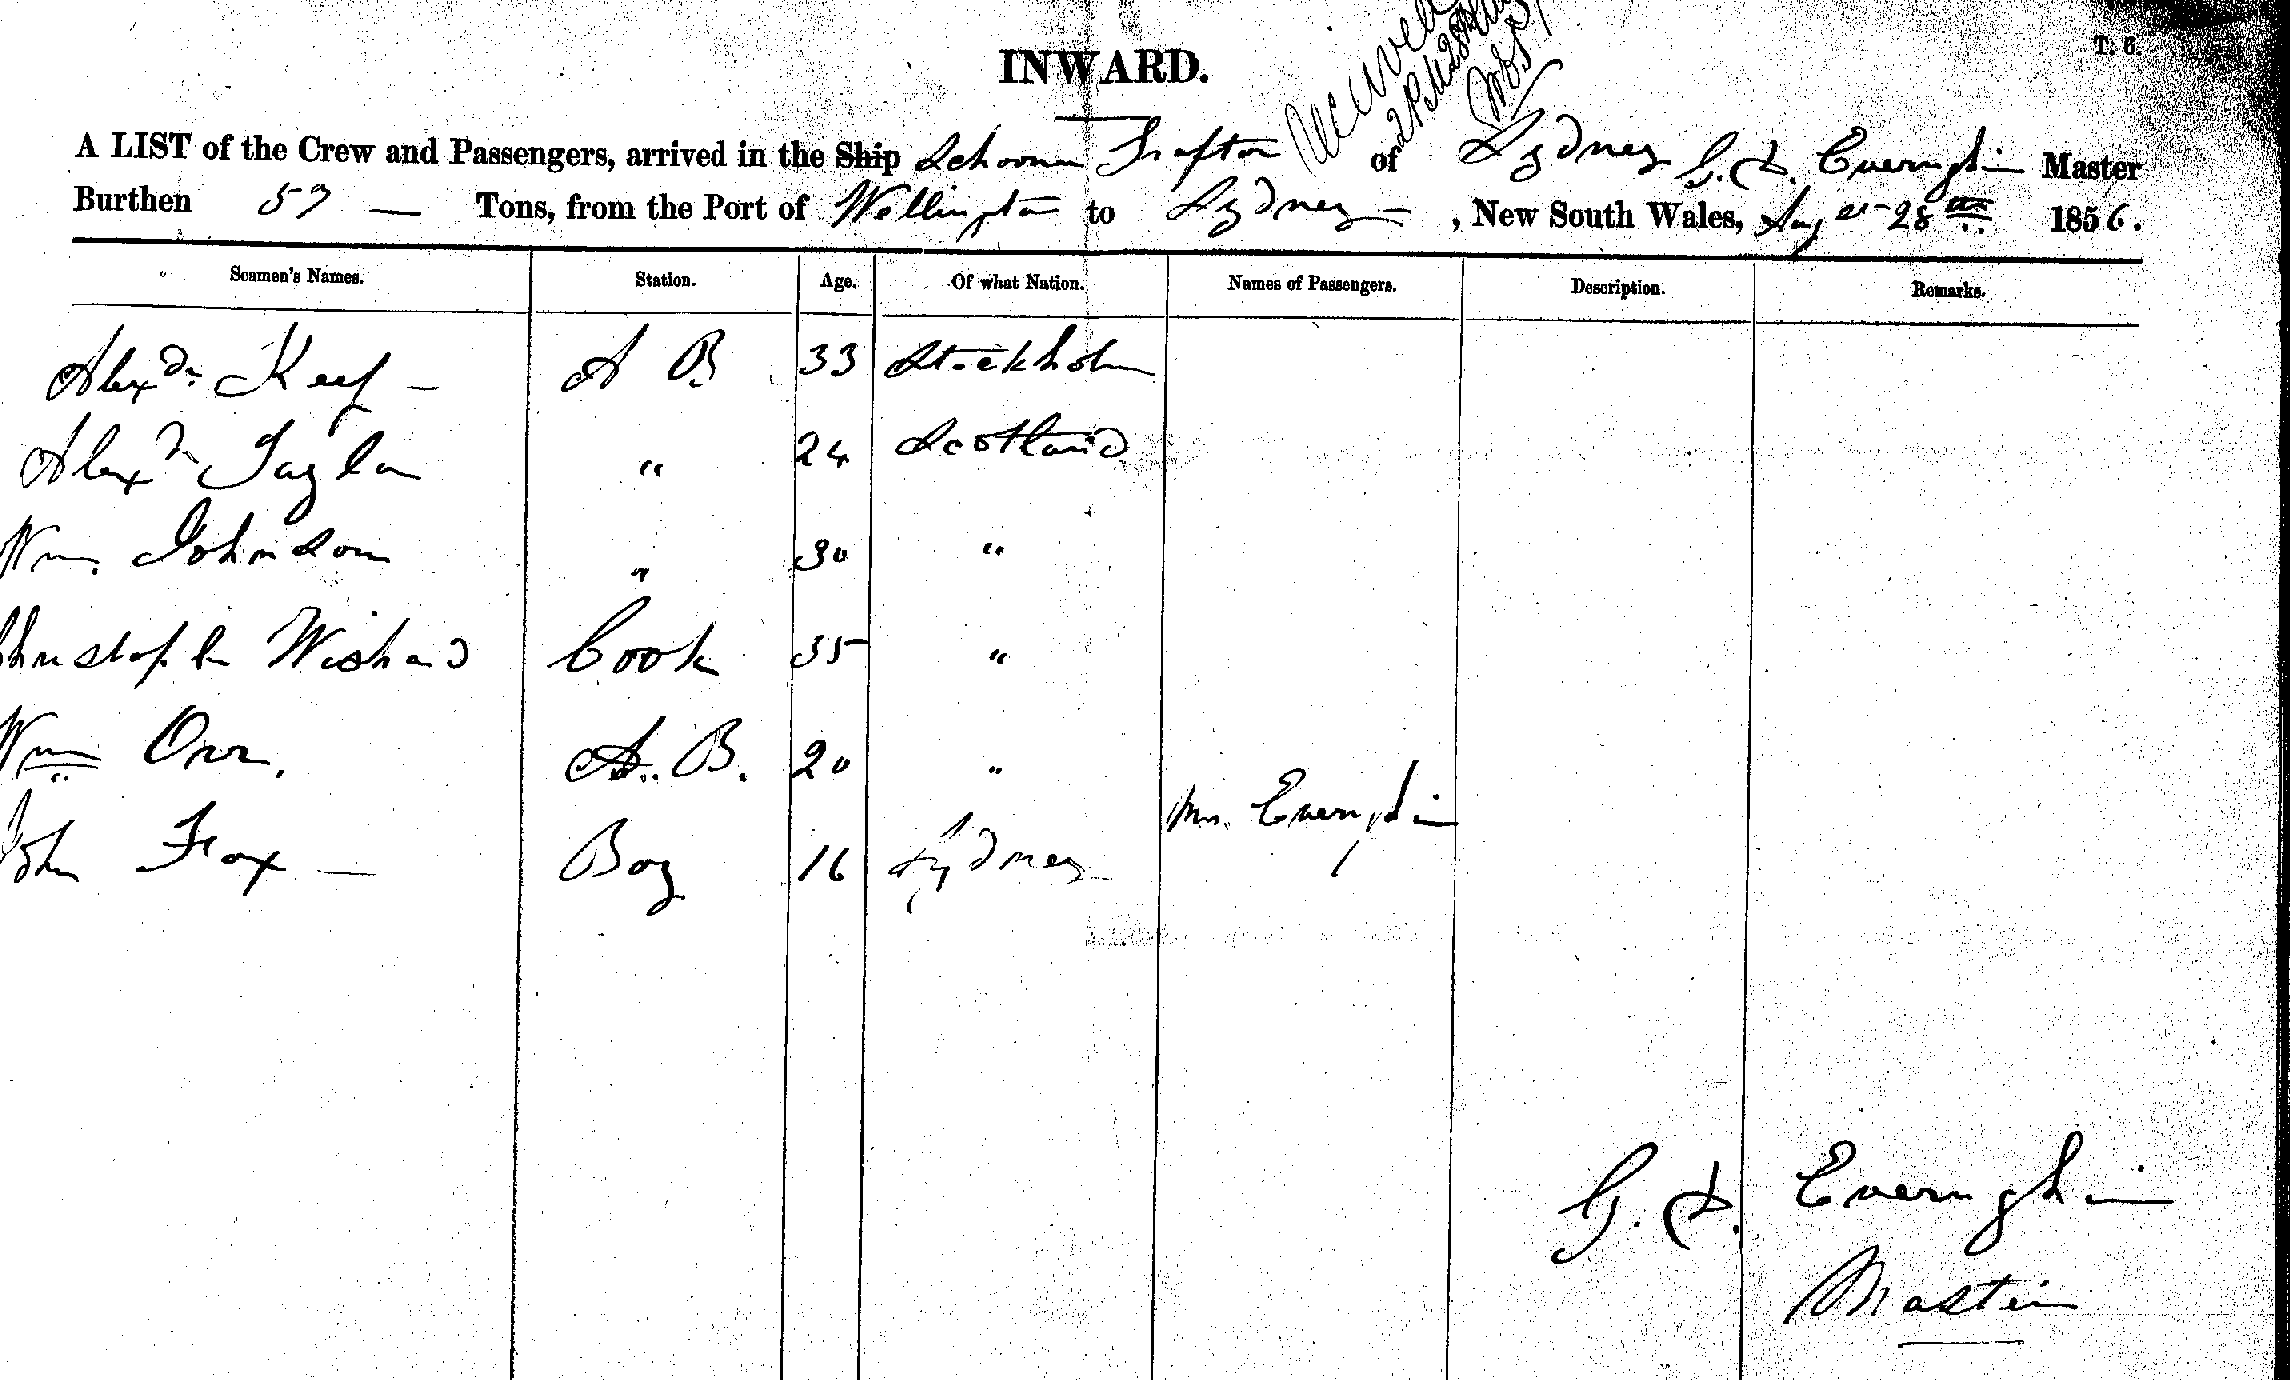 T. 6.
INWARD.
Received
2 P.M. 28
A LIST of the Crew and Passengers, arrived in the Ship Schooner Grafton of Sydney G. D. Everingham Master
Burthen 57 — Tons, from the Port of Wellington to Sydney — , New South Wales, Augst 28th 1856.
Seamen's Names. Station. Age. Of what Nation. Names of Passengers. Description. Remarks.
Alexdr Keef — A B 33 Stockholm
Alexdr Taylor " 24 Scotland
Wm. Johnson " 30 "
Christopher Wishard Cook 35 "
Wm Orr. A. B. 20 "
Mrs. Everingham
John Fox — Boy 16 Sydney 1
G. D. Everingham
Master